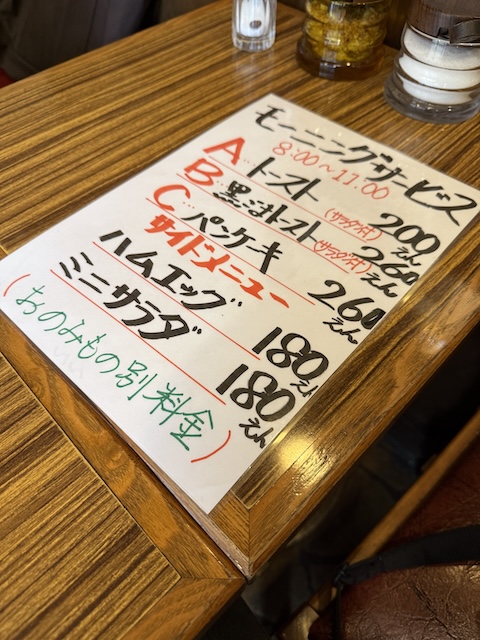 モーニングサービス
8:00〜11:00
A…トースト(サラダ付)200えん
B…黒みつトースト(サラダ付)260えん
C…パンケーキ 260えん
サイドメニュー
ハムエッグ 180えん
ミニサラダ 180えん
(おのみもの別料金)